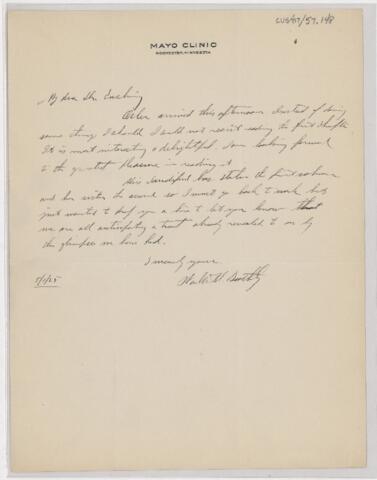 CUS/57/57.148
MAYO CLINIC
ROCHESTER, MINNESOTA
My dear Dr. Cushing
Osler arrived this afternoon. Instead of doing
some things I should I could not resist reading the first chapter
It is most interesting & delightful. I am looking forward
to the greatest pleasure in reading it
Miss has stolen the first volume
and her sister the second so I must go back to work but
just wanted to drop you a line to let you know that
we are all anticipating a treat already revealed to us by
the glimpses we have had.
Sincerely yours
5/1/25
Walter M. Boothby